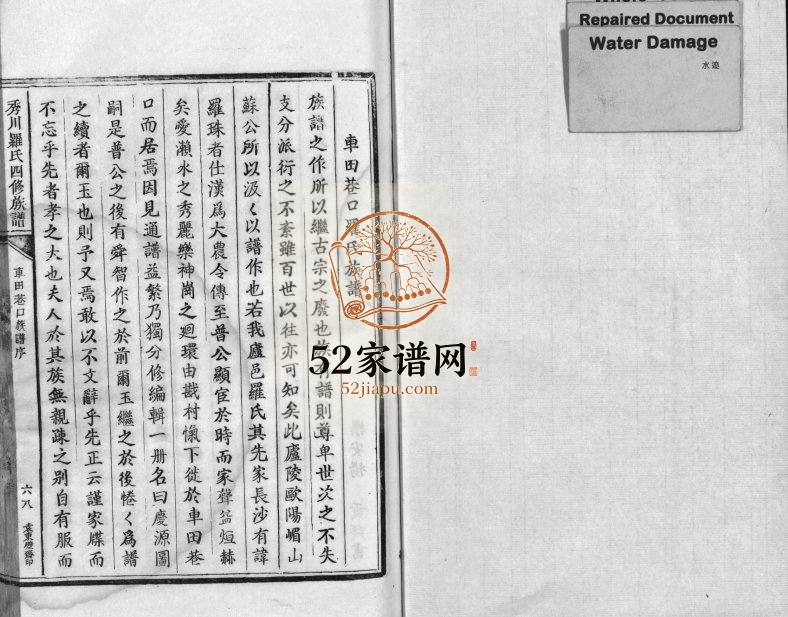 Repaired Document
Water Damage
水迹
車田巷口羅氏族譜
族譜之作所以繼古宗之廢也族有譜則尊卑世次之不失
支分派衍之不紊雖百世以往亦可知矣此廬陵歐陽嵋山
蘇公所以汲々以譜作也若我廬邑羅氏其先家長沙有諱
羅珠者仕漢為大農令傳至普公顯宦於時而家聲益烜赫
矣愛瀨水之秀麗樂神崗之迴環由戡村慠下徙於車田巷
口而居焉因見通譜益繁乃獨分修編輯一册名曰慶源圖
嗣是普公之後有舜智作之於前爾玉繼之於後惓々為譜
之續者爾玉也則予又焉敢以不文辭乎先正云謹家牒而
不忘乎先者孝之大也夫人於其族無親疎之別自有服而
秀川羅氏四修族譜
車田巷口族譜序
六八
52家谱网
52jiapu.com